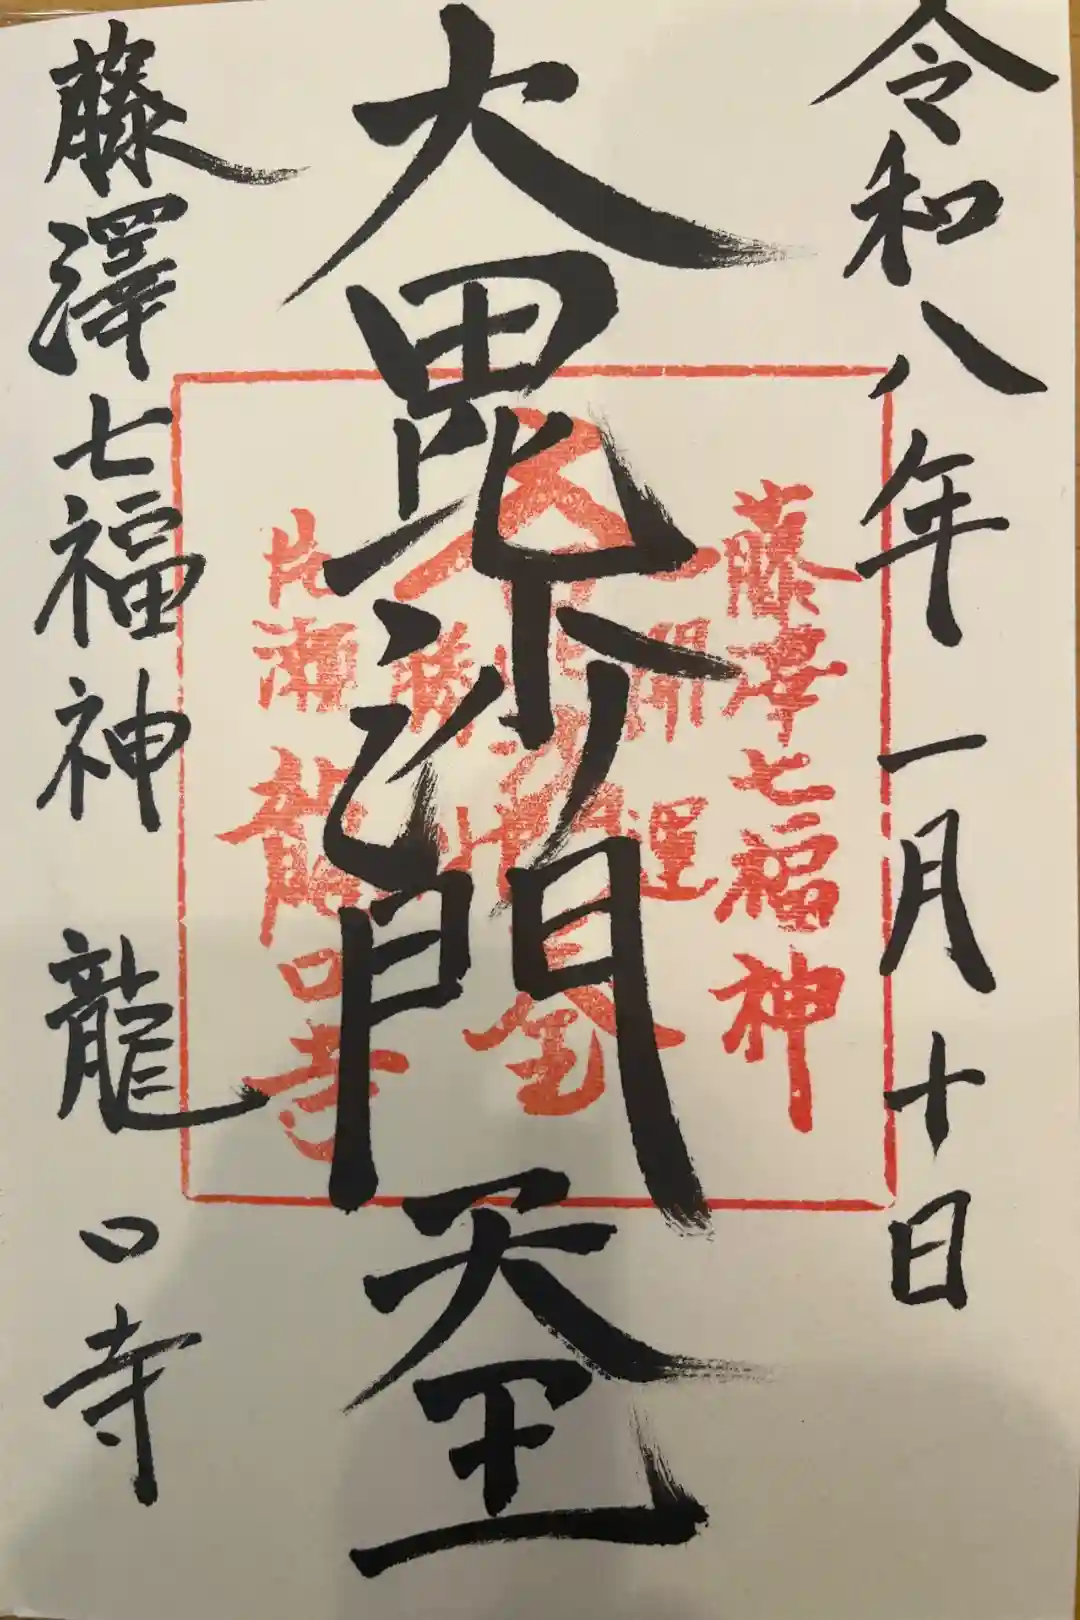 令和八年一月十日
大毘沙門天王
藤澤七福神 龍口寺
藤澤七福神
開運
大毘沙門天王
勝
片瀬龍口寺